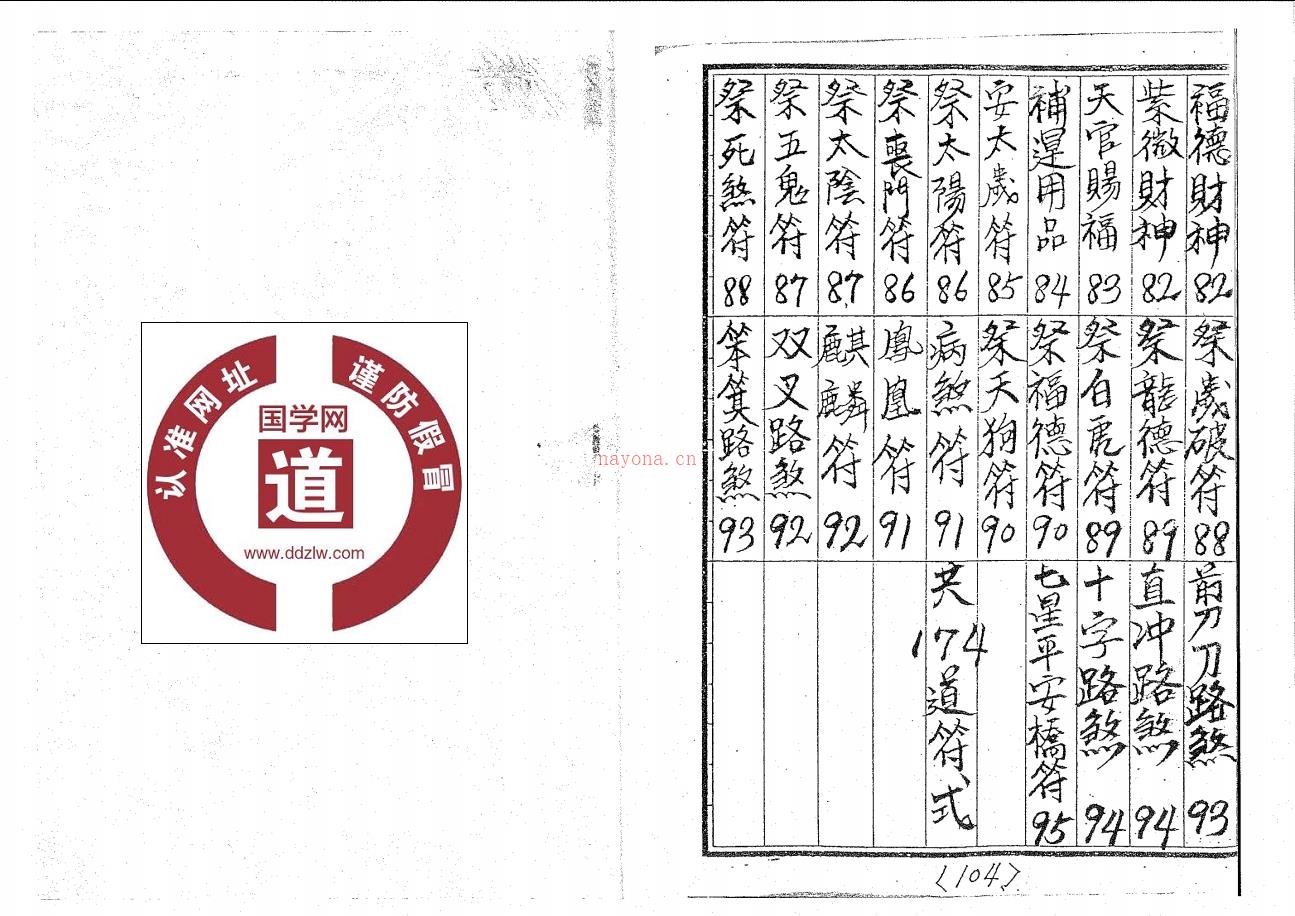 福德財神 82
紫微財神 82
天官賜福 83
補運用品 84
安太歲符 85
祭太陽符 86
祭喪門符 86
祭太陰符 87
祭五鬼符 87
祭死煞符 88
祭歲破符 88
祭龍德符 89
祭白虎符 89
祭福德符 90
祭天狗符 90
病煞符 91
鳳凰符 91
麒麟符 92
双叉路煞 92
笨箕路煞 93
剪刀路煞 93
直冲路煞 94
十字路煞 94
七星平安橋符 95
共174道符式
<104>
认准网址
谨防假冒
国学网
道
www.ddzlw.com
nayona.cn